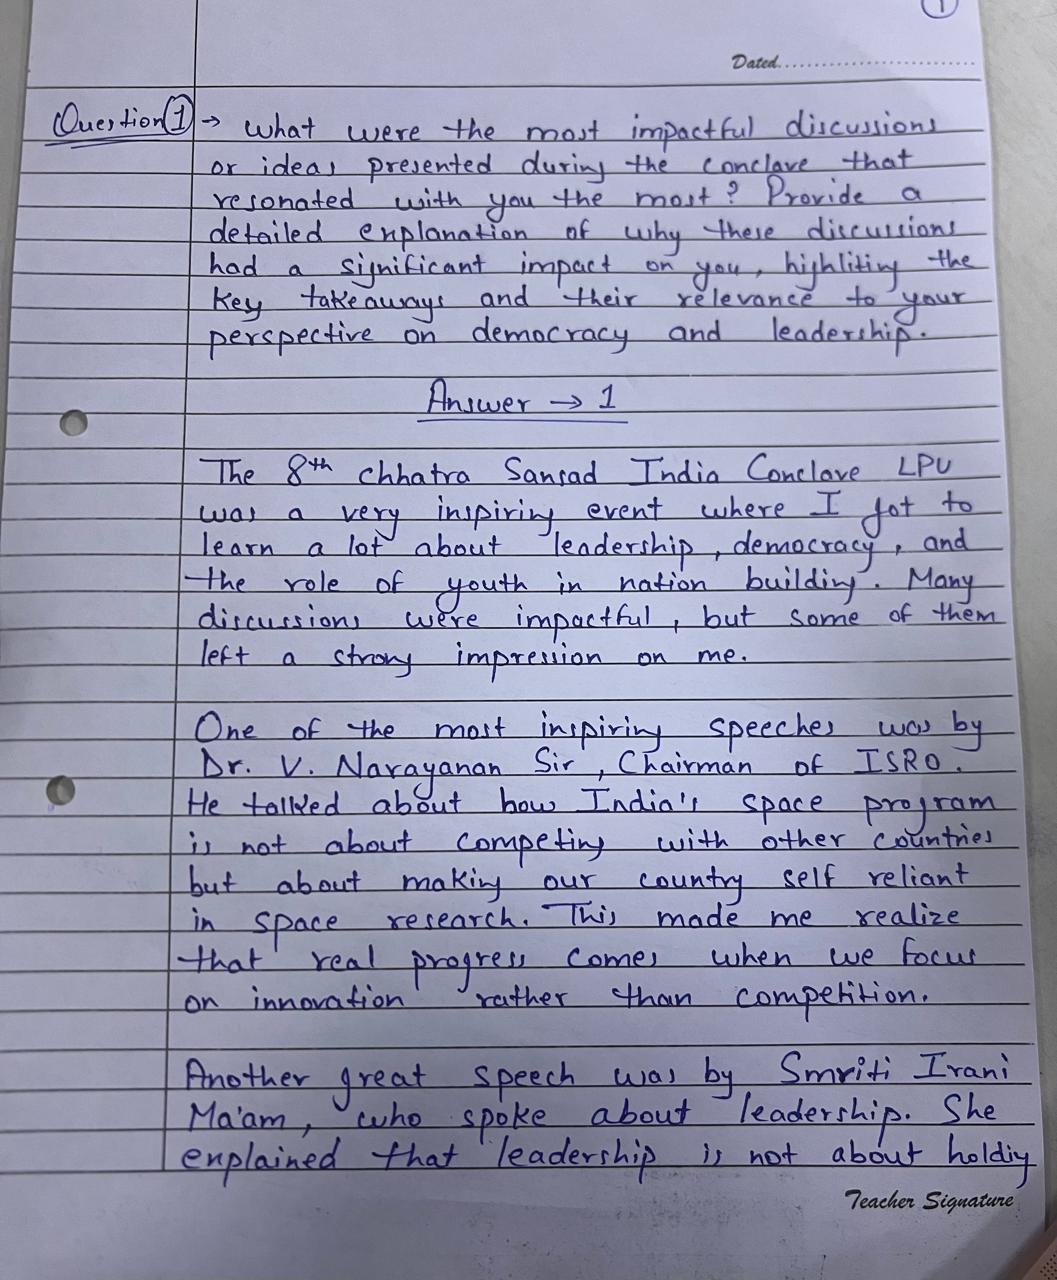 1
Dated
Question 1 → what were the most impactful discussions
or ideas presented during the conclave that
resonated with you the most? Provide a
detailed explanation of why these discussions
had a significant impact on you, highliting the
key takeaways and their relevance to your
perspective on democracy and leadership.
Answer → 1
The 8th Chhatra Sansad India Conclave LPU
was a very inspiring event where I got to
learn a lot about leadership, democracy, and
the role of youth in nation building. Many
discussions were impactful, but some of them
left a strong impression on me.
One of the most inspiring speeches was by
Dr. V. Narayanan Sir, Chairman of ISRO.
He talked about how India's space program
is not about competing with other countries
but about making our country self reliant
in space research. This made me realize
that real progress comes when we focus
on innovation rather than competition.
Another great speech was by Smriti Irani
Ma'am, who spoke about leadership. She
explained that leadership is not about holding
Teacher Signature